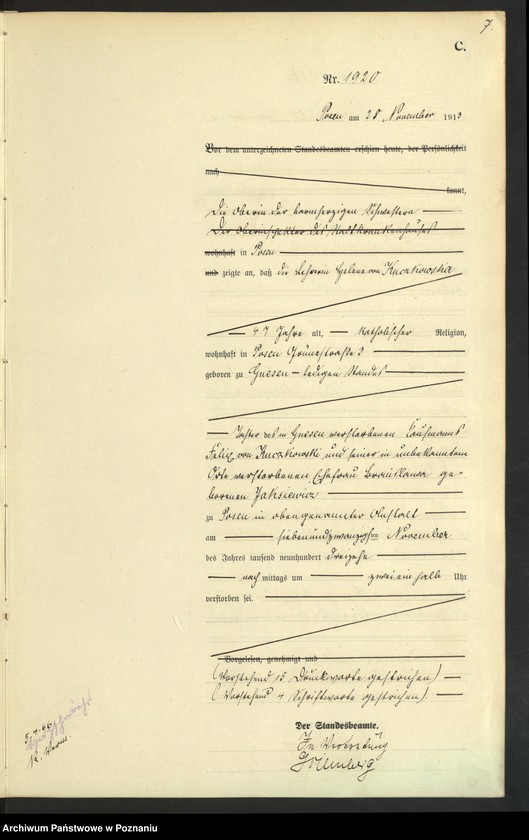 7.
C.
Nr. 1920
Posen am 28 November 1913
Vor dem unterzeichneten Standesbeamten erschien heute, der Persönlichkeit
nach
kannt,
Die Oberin der barmherzigen Schwestern
Der Oberinspektor des Stadtkrankenhauses
wohnhaft in Posen
und zeigte an, daß die Lehrerin Helene von Kuczkowska
47 Jahre alt, katholischer Religion,
wohnhaft in Posen Grünestraße 3
geboren zu Gnesen – ledigen Standes
Tochter des in Gnesen verstorbenen Kaufmanns
Felix von Kuczkowski und seiner in unbekanntem
Orte verstorbenen Ehefrau Bronislawa ge-
borenen Jaksiewicz
zu Posen in obengenannter Anstalt
am siebenundzwanzigsten November
des Jahres tausend neunhundert dreizehn
nachmittags um zweieinhalb Uhr
verstorben sei.
Vorgelesen, genehmigt und
(Vorstehend 15 Druckworte gestrichen)
(Vorstehend 4 Schriftworte gestrichen).
Der Standesbeamte.
In Vertretung
Archiwum Państwowe w Poznaniu